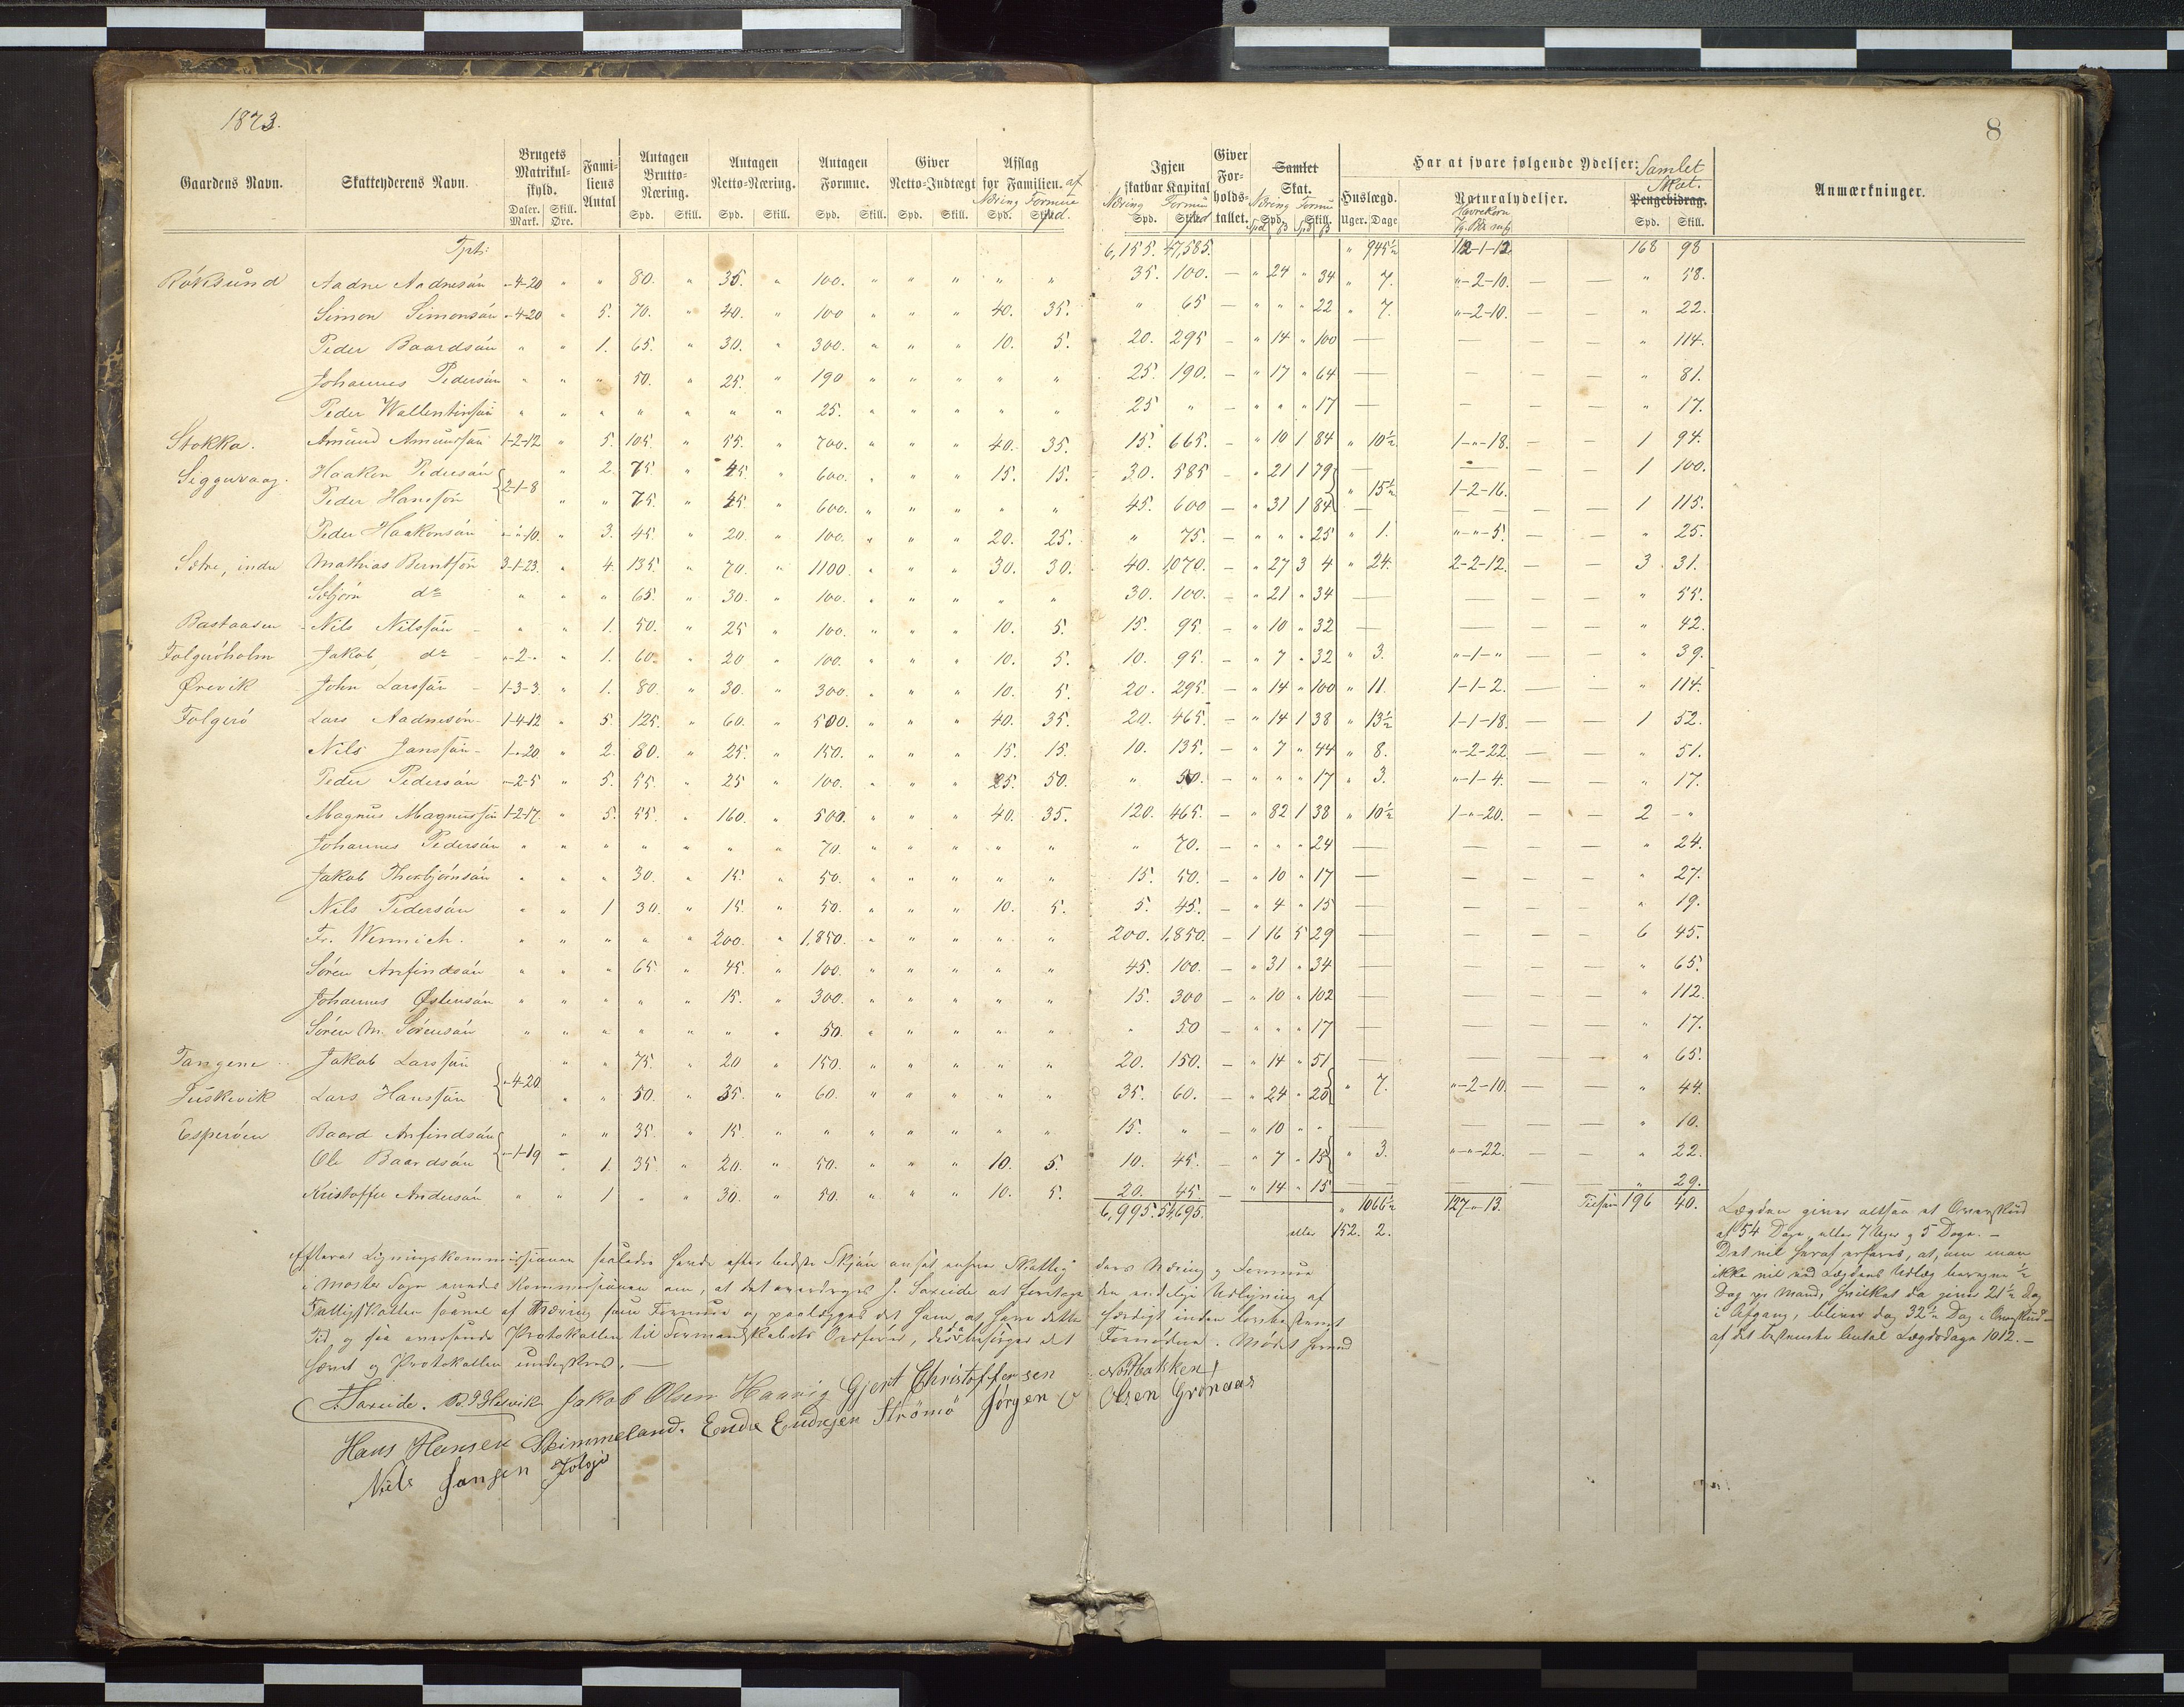 1873.
8
Gaardens Navn. Skatteyderens Navn. Brugets Matrikul-skyld. Daler. Mark. Skill. Øre. Familiens Antal Antagen Brutto-Næring. Spd. Skill. Antagen Netto-Næring. Spd. Skill. Antagen Formue. Spd. Skill. Giver Netto-Indtægt Spd. Skill. Afslag for Familien. af Næring Formue Spd. Skill. Spd Igjen skatbar Kapital Næring Formue Spd. Skill. Spd Giver For-holds-tallet. Samlet Skat. Næring Formue Spd. Skill. Spd ß Spd ß Har at svare følgende Ydelser: Huslægd. Uger. Dage Naturalydelser. Havrekorn Pengebidrag. Samlet Skat. Spd. Skill. Anmærkninger.
Tpt: 6,155. 47,585. " 945½ 112-1-12. 168 98
Röksund Aadne Aadnesön "-4-20 " " 80. " 35. " 100. " " " " " 35. 100. — " 24 " 34 " 7. "-2-10. — — " 58.
Simon Simonsön "-4-20 " 5. 70. " 40. " 100 " " " 40. 35. " 65 — " " " 22 " 7. "-2-10. — — " 22.
Peder Baardsön " " 1. 65. " 30. " 300. " " " 10. 5. 20. 295 — " 14 " 100 — — — — " 114.
Johannes Pedersön " " " 50. " 25. " 190 " " " " " 25. 190. — " 17 " 64 — — — — " 81.
Peder Wallentinsön " " " " " " " 25. " " " " " 25 " — " " " 17 — — — — " 17.
Stokka. Amund Amundsön 1-2-12 " 5. 105. " 55. " 700. " " " 40. 35. 15. 665. — " 10 1 84 " 10½ 1-"-18. — — 1 94.
Siggervaag. Haakon Pedersön 2-1-8 " 2. 75. " 45. " 600. " " " 15. 15. 30. 585 — " 21 1 79 — — — — 1 100.
Peder Hansson " " 75. " 45. " 600. " " " " " 45. 600 — " 31 1 84 " 15½ 1-2-16. — — 1 115.
Peder Haakonsön "-"-10. " 3. 45. " 20. " 100. " " " 20. 25. " 75. — " " " 25 " 1. "-"-5. — — " 25.
Sætre, indre Mathias Berntsön 3-1-23. " 4. 135. " 70. " 1100. " " " 30. 30. 40. 1,070. — " 27 3 4 " 24. 2-2-12. — — 3 31.
Solbjörn do " " " 65. " 30. " 100. " " " " " 30. 100. — " 21 " 34 — — — — " 55.
Bastaasen Nils Nilssön " " 1. 50. " 25 " 100. " " " 10. 5. 15. 95. — " 10 " 32 — — — — " 42.
Folgeröholm Jakob do "-2-" " 1. 60. " 20 " 100. " " " 10. 5. 10. 95. — " 7 " 32 " 3. "-1-" — — " 39.
Ørevik John Larssön 1-3-3. " 1. 80. " 30. " 300. " " " 10. 5. 20. 295. — " 14 " 100 " 11. 1-1-2. — — " 114.
Folgerö Lars Aadnesön 1-4-12 " 5. 125. " 60. " 500. " " " 40. 35. 20. 465. — " 14 1 38 " 13½ 1-1-18. — — 1 52.
Nils Janssön 1-"-20. " 2. 80. " 25. " 150. " " " 15. 15. 10. 135. — " 7 " 44 " 8. "-2-22 — — " 51.
Peder Pedersön "-2-5 " 5. 55. " 25 " 100. " " " 25. 50. " 50. — " " " 17 " 3. "-1-4. — — " 17.
Magnus Magnussön 1-2-17. " 5. 55. " 160. " 500. " " " 40. 35. 120. 465. — " 82 1 38 " 10½ 1-"-20. — — 2 "
Johannes Pedersön " " " " " " " 70. " " " " " " 70. — " " " 24 — — — — " 24.
Jakob Thorbjörnsön " " " 30. " 15. " 50. " " " " " 15. 50. — " 10 " 17 — — — — " 27.
Nils Pedersön " " 1 30. " 15. " 50. " " " 10. 5. 5. 45. — " 4 " 15 — — — — " 19.
Fr. Wernich. " " " " " 200. " 1,850. " " " " " 200. 1,850. — 1 16 5 29 — — — — 6 45.
Sören Anfindsön " " " 65. " 45. " 100. " " " " " 45. 100. — " 31 " 34 — — — — " 65.
Johannes Østensön " " " " " 15. " 300. " " " " " 15. 300 — " 10 " 102 — — — — " 112.
Sören M. Sörensön " " " " " " " 50. " " " " " " 50 — " " " 17 — — — — " 17.
Tangene Jakob Larssön "-4-20 " " 75. " 20 " 150. " " " " " 20. 150. — " 14 " 51 — — — — " 65.
Tuskevik Lars Hanssön " " 50. " 35. " 60. " " " " " 35. 60. — " 24 " 20 " 7. "-2-10. — — " 44.
Esperöen Baard Anfindsön "-1-19 " " 35. " 15. " " " " " " " 15. " — " 10 " " — — — — " 10.
Ole Baardsön " 1. 35. " 20. " 50. " " " 10. 5. 10. 45. — " 7 " 15 " 3. "-"-22. — — " 22.
Kristoffer Andersön " " 1 " " 30. " 50. " " " 10. 5. 20. 45 — " 14 " 15 — — — — " 29.
6,995. 54,695. " 1066½ 127-"-13. Tilsam 196 40.
eller 152. 2.
Efterat Ligningskommissionen saaledes havde efter bedste Skjön ansat enhver Skatteyders Næring og Formue
i Moster Sogn enedes Kommissionen om, at det overdroges J. Sareide at foretage den endelige Udligning af
Fattigskatten saavel af Næring som Formue og paalægges det ham, at have dette færdigt inden lovbestemt
Tid og saa oversende Protokollen til Formandskabets Ordförer, der besörger det Fornödne. Mödet herved
hævet og Protokollen underskrev. —
J. Sareide. Jakob Olsen Haavig Gjert Christoffersen Nöstbakken
Hans Hansen Skimmeland. Endre Endresen Strömö Jörgen Olsen Grönaas
Niels Jansen Folgö
Lægden giver altsaa et Overskud
af 54 Dage, eller 7 Uger og 5 Dage. —
Det vil heraf erfares, at, om man
ikke vil ved Lægdens Udlæg beregne ½
Dag pr Mand, hvilket da giver 21½ Dag
i Afgang, bliver dog 32½ Dag i Overskud
af det bestemte Antal Lægdsdage 1012. —